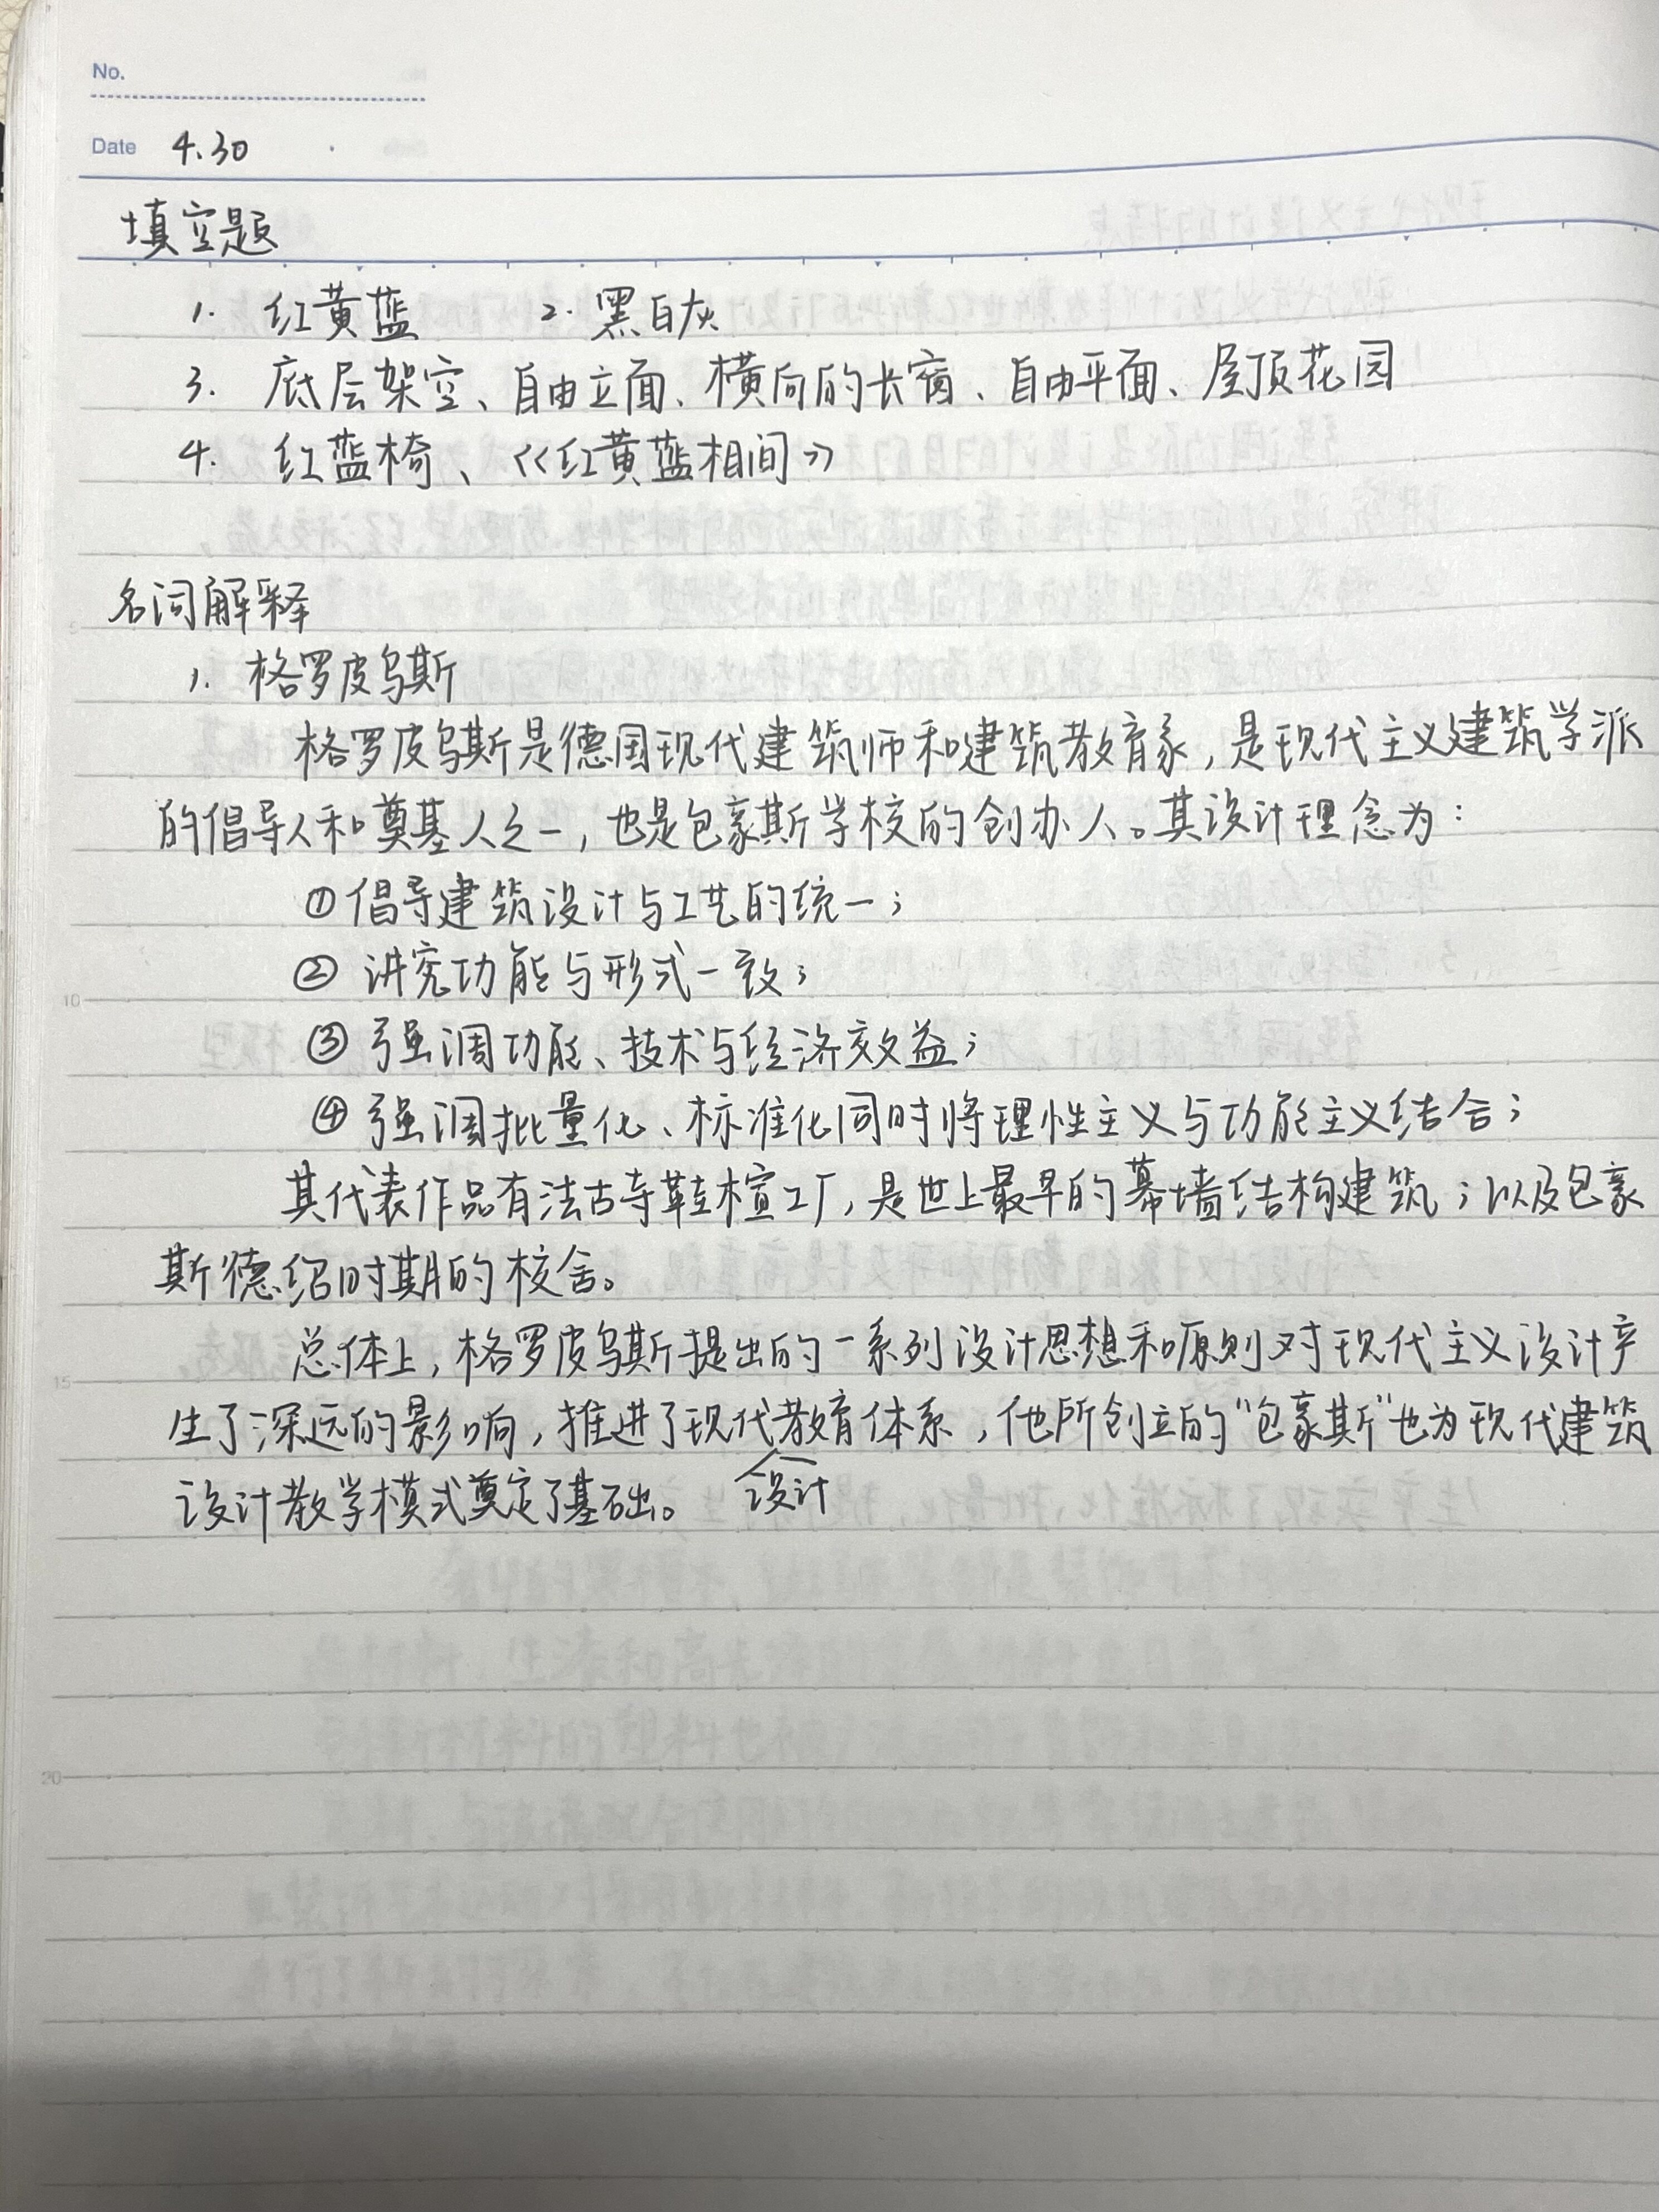 No.
Date 4.30
填空题
1. 红黄蓝 2. 黑白灰
3. 底层架空、自由立面、横向的长窗、自由平面、屋顶花园
4. 红蓝椅、《红黄蓝相间》
名词解释
1. 格罗皮乌斯
格罗皮乌斯是德国现代建筑师和建筑教育家，是现代主义建筑学派
的倡导人和奠基人之一，也是包豪斯学校的创办人。其设计理念为：
①倡导建筑设计与工艺的统一；
② 讲究功能与形式一致；
③ 强调功能、技术与经济效益；
④ 强调批量化、标准化同时将理性主义与功能主义结合；
其代表作品有法古寺鞋楦工厂，是世上最早的幕墙结构建筑；以及包豪
斯德绍时期的校舍。
总体上，格罗皮乌斯提出的一系列设计思想和原则对现代主义设计产
生了深远的影响，推进了现代设计教育体系，他所创立的“包豪斯”也为现代建筑
设计教学模式奠定了基础。
5
10
15
20